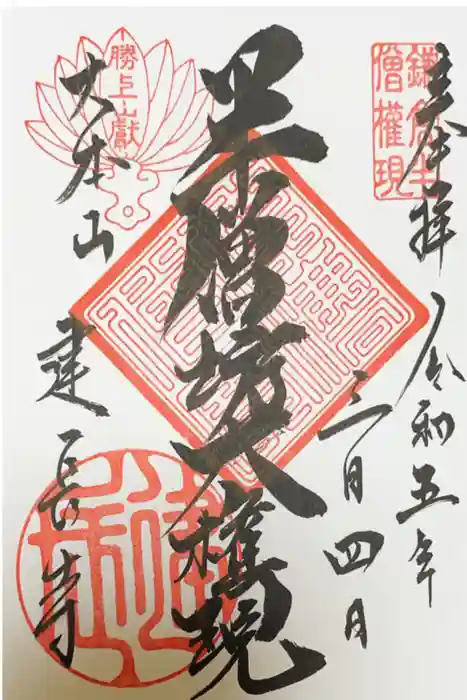 鎌倉半
僧權現
奉拝
令和五年
三月四日
半僧坊大權現
勝上巘
大本山
建長寺